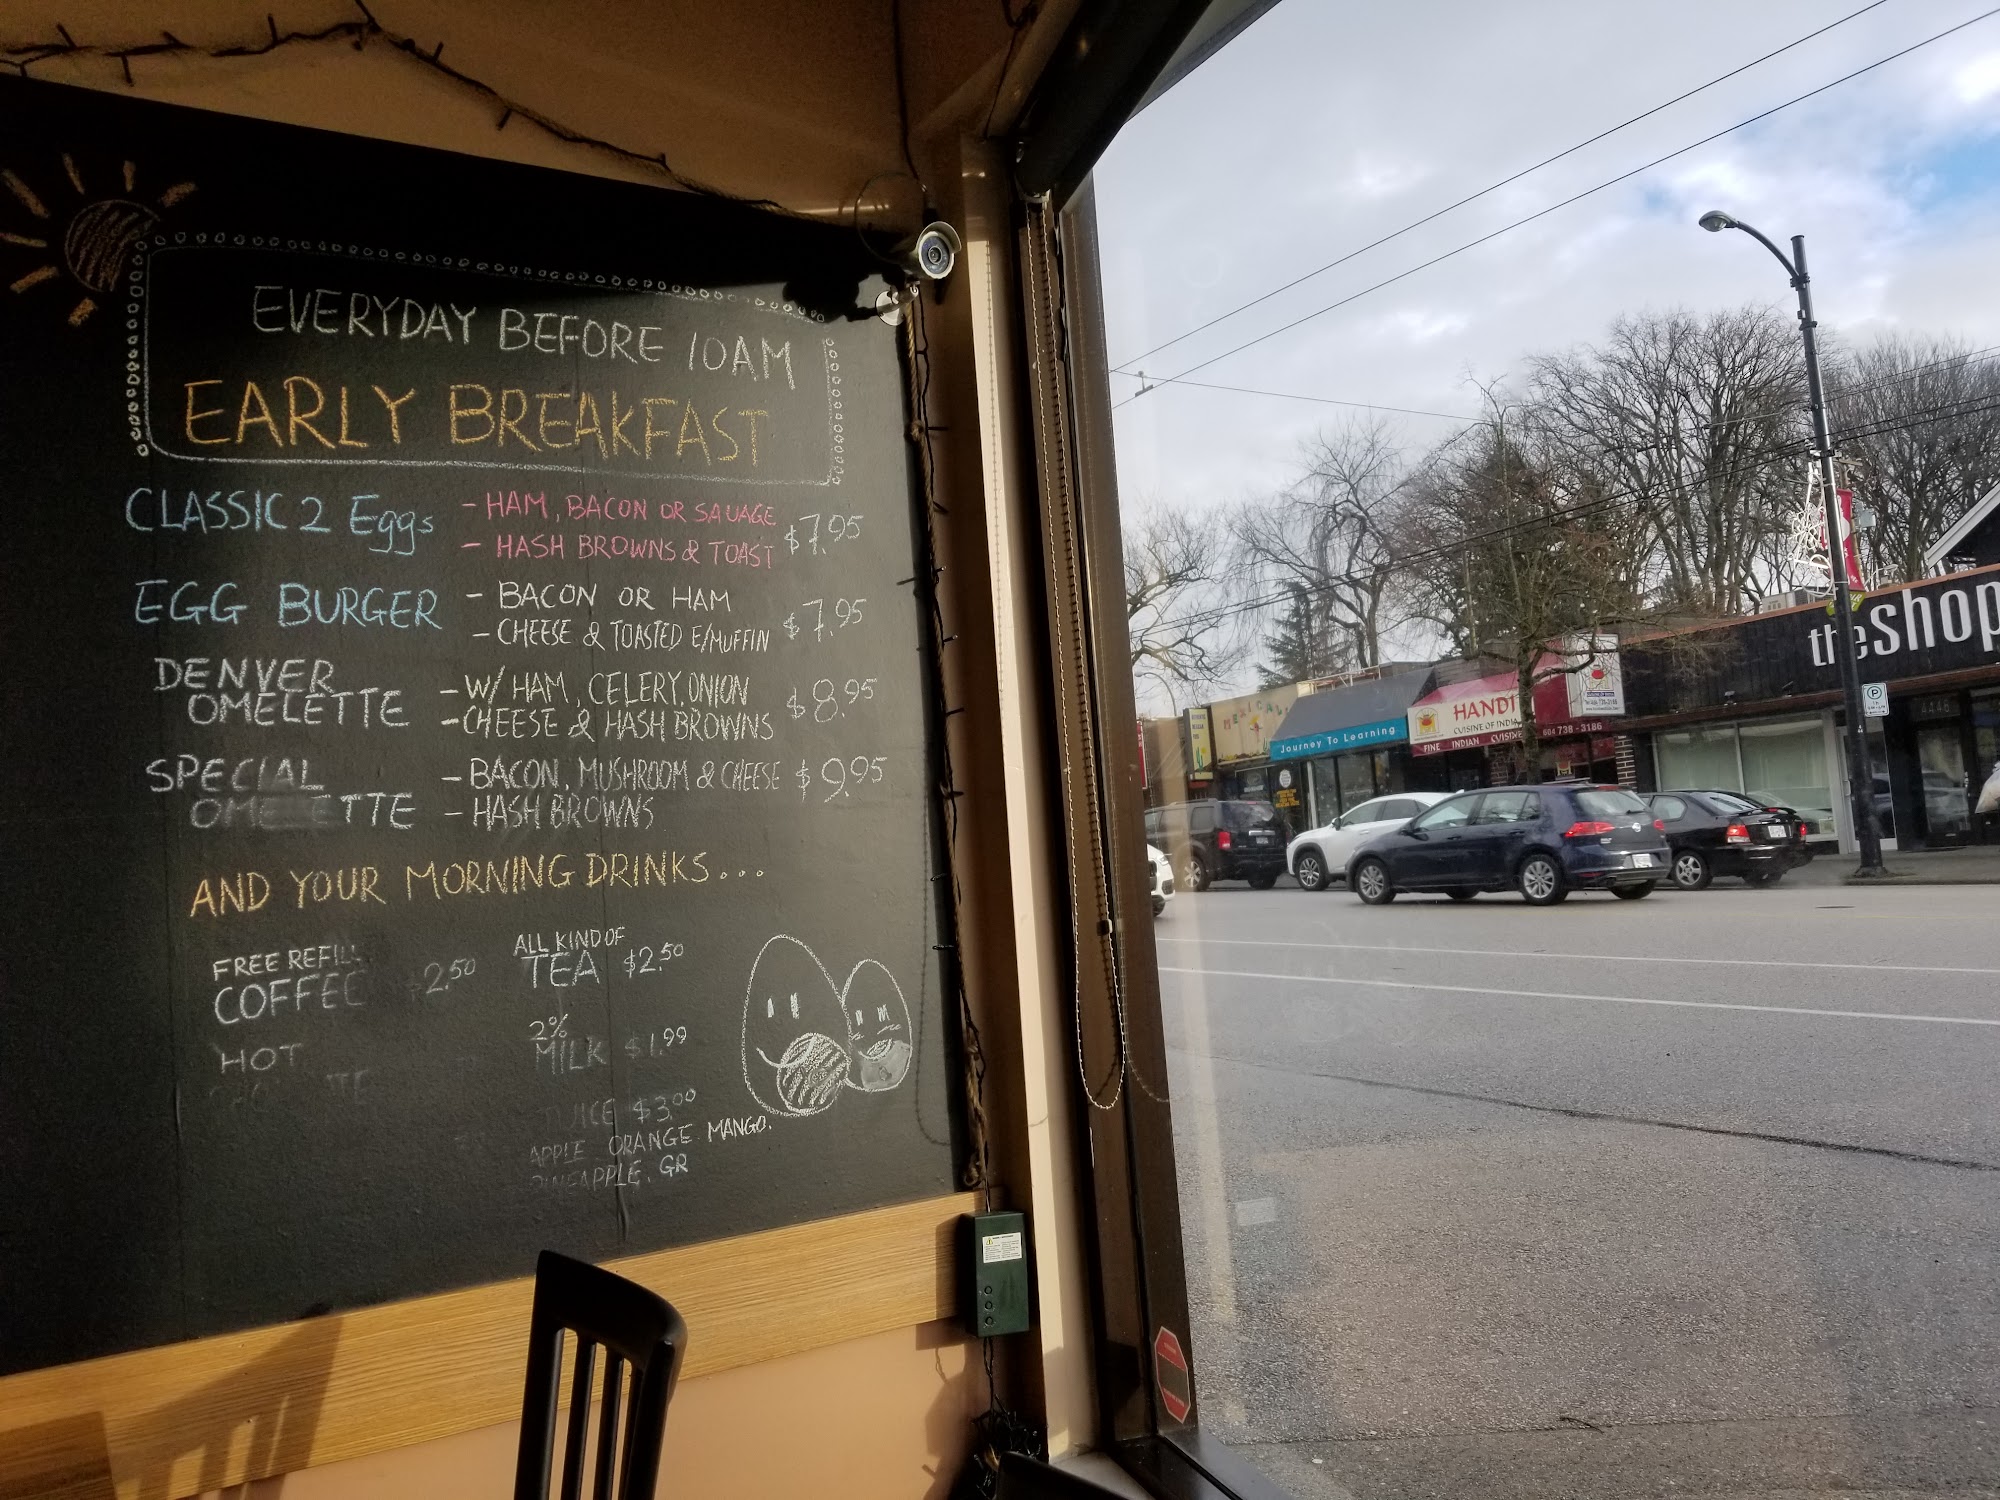 EVERYDAY BEFORE 10AM
EARLY BREAKFAST
CLASSIC 2 Eggs
- HAM, BACON OR SAUAGE
- HASH BROWNS & TOAST
$7.95
EGG BURGER
- BACON OR HAM
- CHEESE & TOASTED E/MUFFIN
$7.95
DENVER
OMELETTE
- W/ HAM, CELERY, ONION
- CHEESE & HASH BROWNS
$8.95
SPECIAL
OMELETTE
- BACON, MUSHROOM & CHEESE
- HASH BROWNS
$9.95
AND YOUR MORNING DRINKS...
FREE REFILL
COFFEE $2.50
ALL KIND OF
TEA $2.50
HOT
2%
MILK $1.99
$3.00
APPLE ORANGE MANGO.
PINEAPPLE, GR
Journey To Learning
HANDI
CUISINE OF INDIA
FINE INDIAN CUISINE
604 738-3186
the shop
4448
P